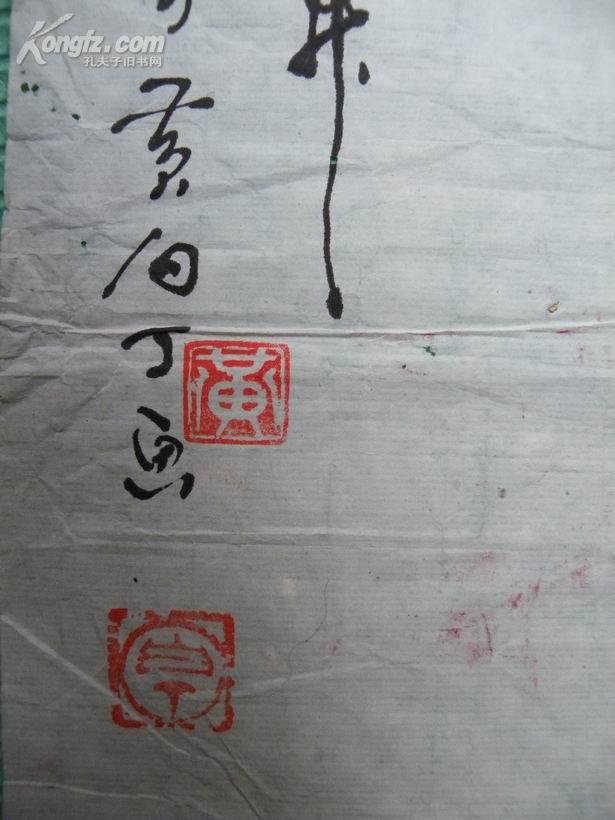 Kongfz.com
孔夫子旧书网
黄白丁画
黃
白丁